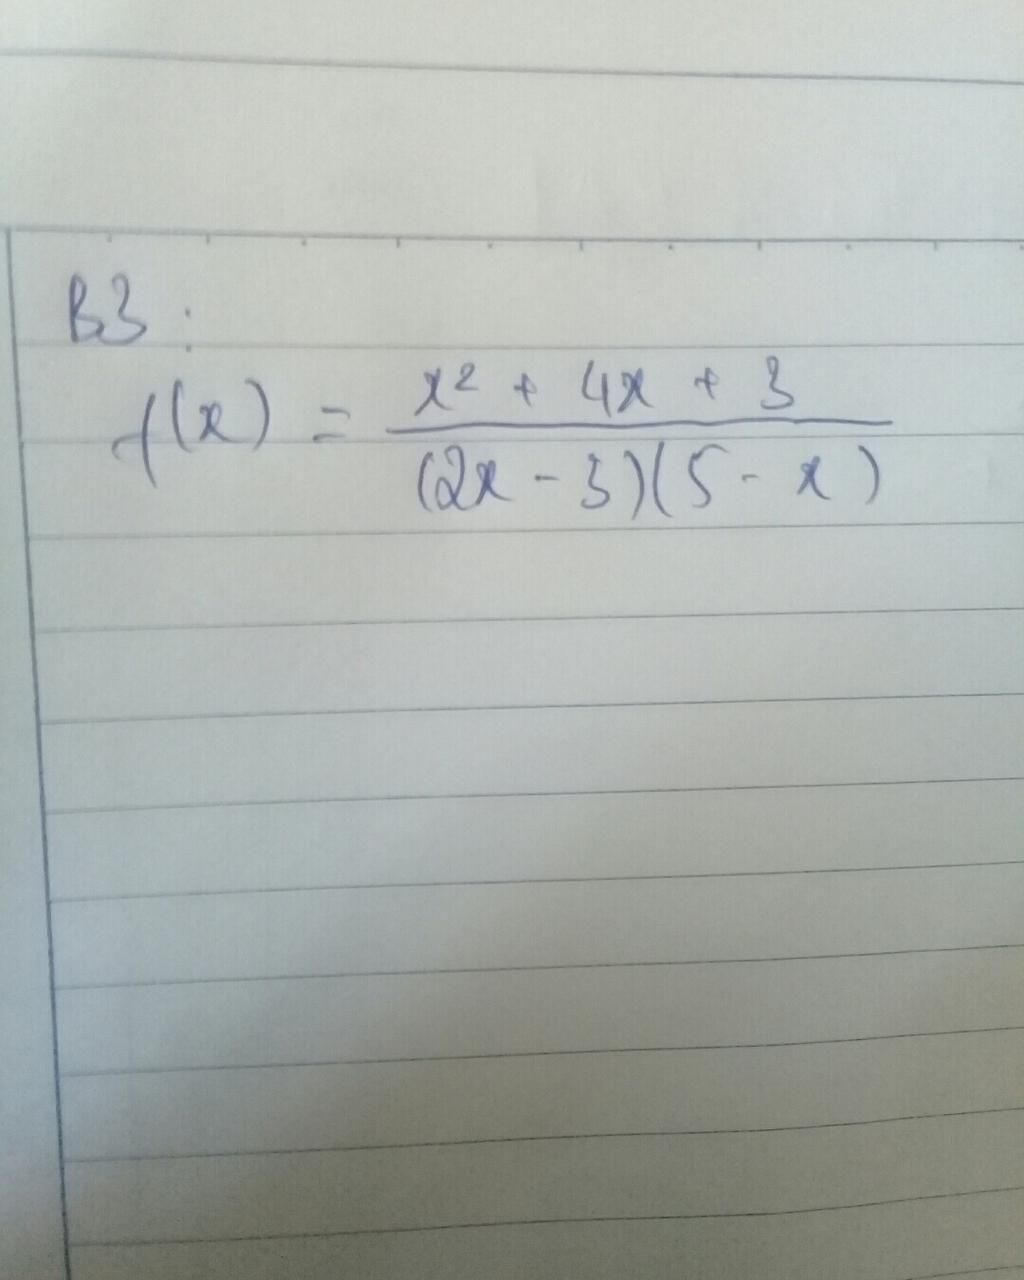 B3:
f(x) = \frac{x^2 + 4x + 3}{(2x - 3)(5 - x)}